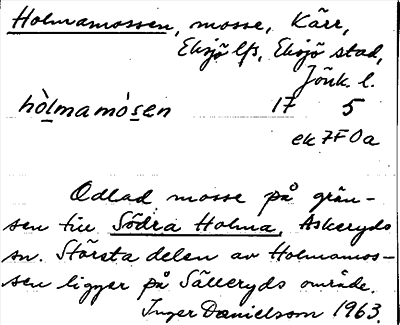 Holmamossen, mosse, Kärr,
Eksjö lfs, Eksjö stad,
Jönk. l.
hòlmamòsen 17 5
ek 7F0a
Odlad mosse på grän-
sen till Södra Holma, Askeryds
sn. Största delen av Holmamos-
sen ligger på Sälleryds område.
Inger Danielsson 1963.